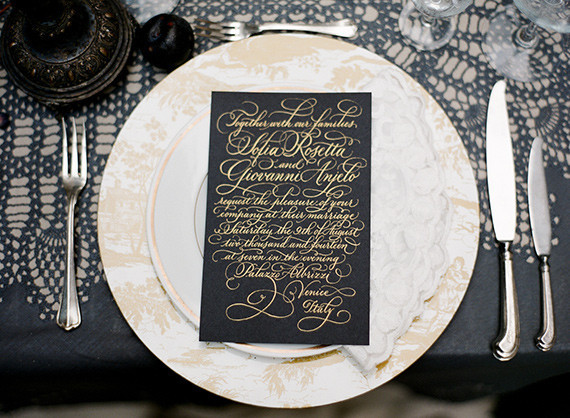 Together with our families,
Sofia Rosetta
and
Giovanni Anjelo
request the pleasure of your
company at their marriage
Saturday the 9th of August
two thousand and fourteen
at seven in the evening
Palazzo Albrizzi
Venice
Italy